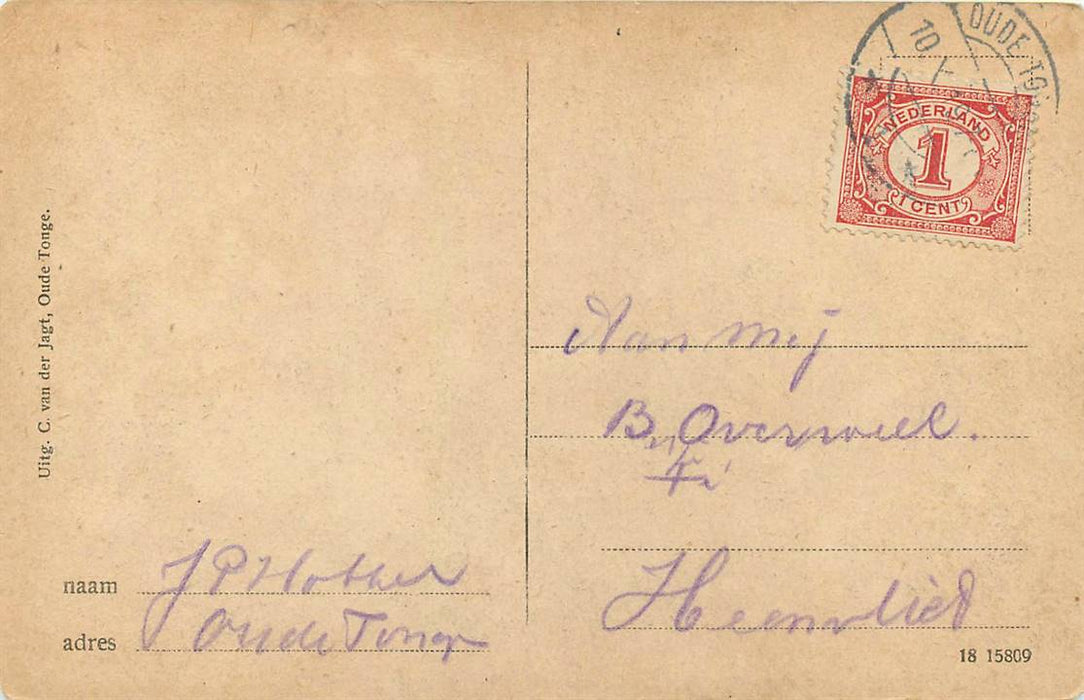 Uitg. C. van der Jagt, Oude Tonge.
OUDE TO
10
NEDERLAND
1
1 CENT
Aan mej
B. Overweel.
naam J P
adres Oude Tonge
Heenvliet
18 15809